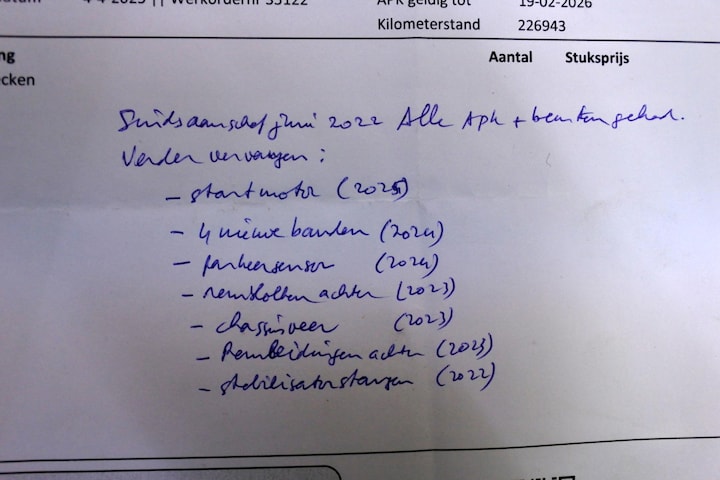 4-4-2025 || Werkordernr 35122
APK geldig tot 19-02-2026
Kilometerstand 226943
ng Aantal Stuksprijs
cken
Sindsaanschaf juni 2022 Alle Apk + beurten gehad.
Verder vervangen :
- startmotor (2025)
- 4 nieuwe banden (2024)
- parkeersensor (2024)
- remblokken achter (2023)
- chassisveer (2023)
- Remleidingen achter (2023)
- stabilisatorstangen (2022)